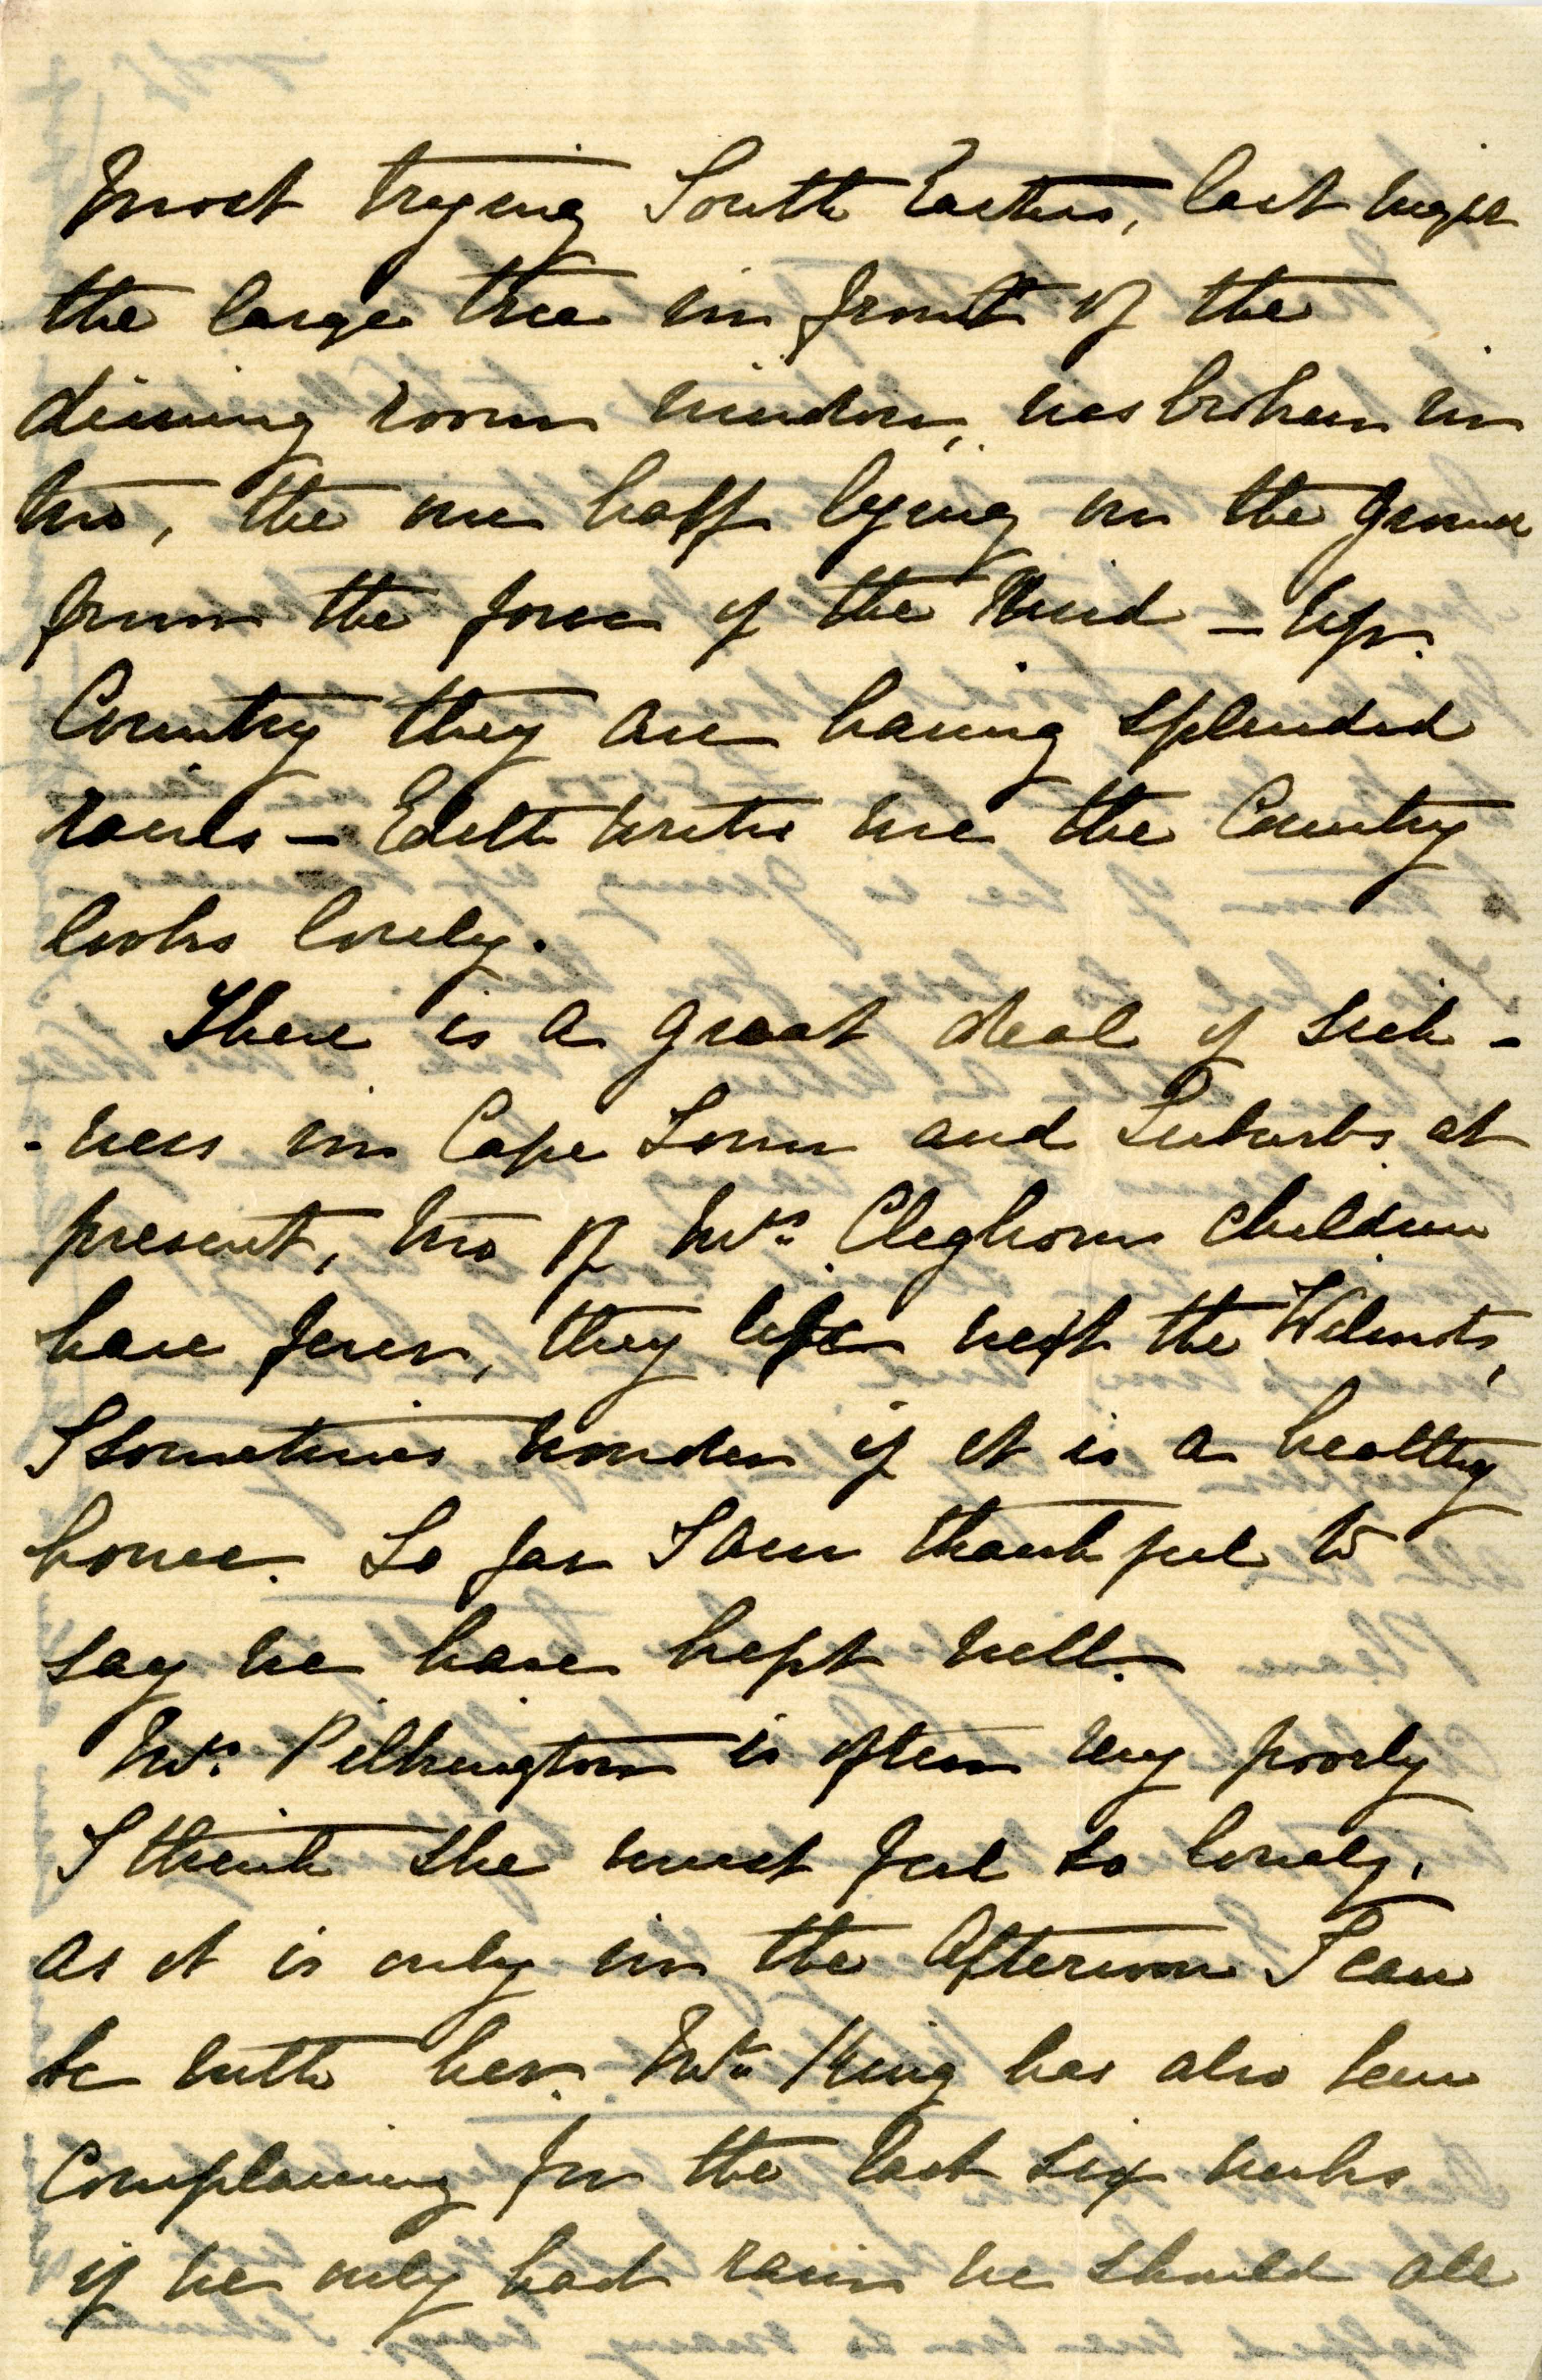 most trying South Easters, last night
the large tree in front of the
dining room window, was broken in
two, the one half lying on the ground
from the force of the Wind – Up.
Country they are having splendid
rains – Edith writes me the Country
looks lovely.
There is a great deal of sick-
-ness in Cape Town and Suburbs at
present, two of Mrs. Cleghorns children
have fever, they left next the Wilmots,
I sometimes wonder if it is a healthy
house. So far I am thankful to
say we have kept well.
Mrs. Pilkington is often very poorly
I think she must feel so lonely,
as it is only in the afternoon I can
be with her. Mrs King has also been
Complaining for the last six weeks
if we only had rain we should all